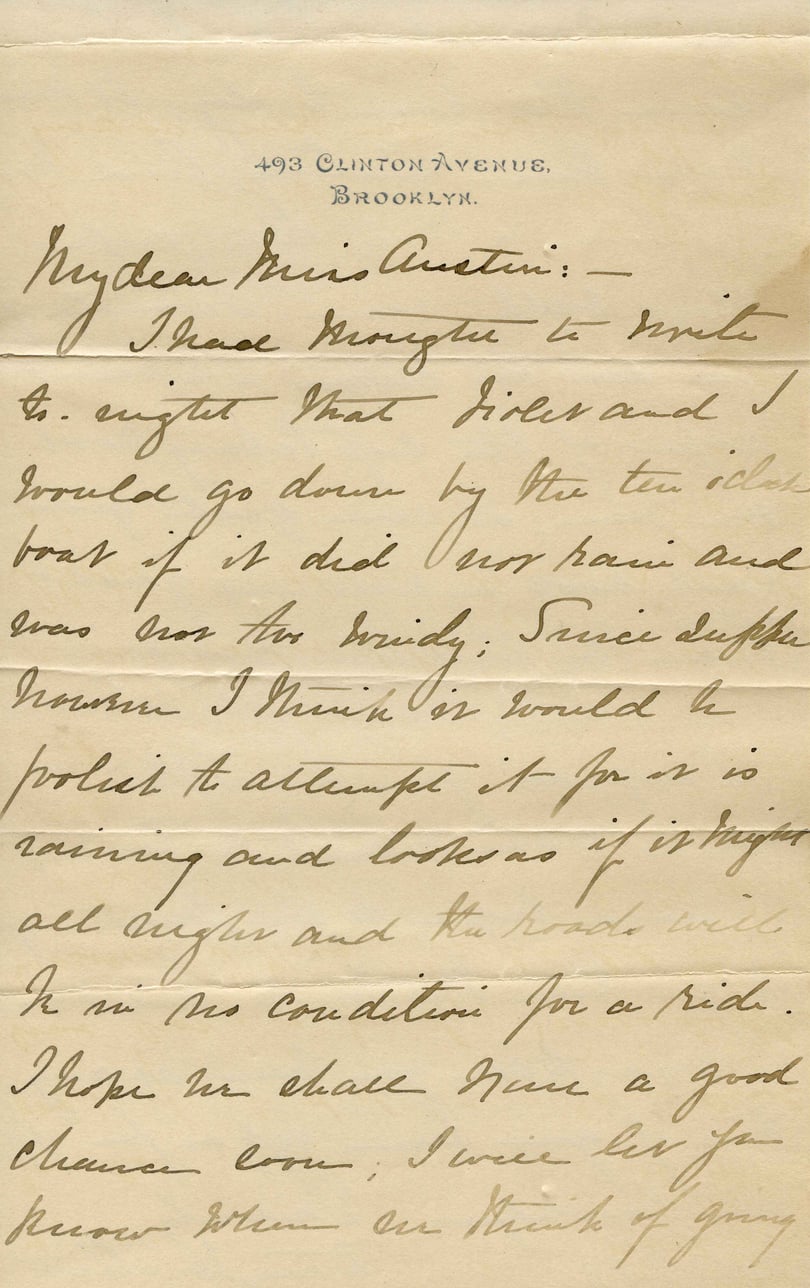 493 CLINTON AVENUE,
BROOKLYN.
My dear Miss Austin: —
I had thought to write
to-night that Violet and I
would go down by the ten o'clock
boat if it did not rain and
was not too windy; Since supper
however I think it would be
foolish to attempt it for it is
raining and looks as if it might
all night and the roads will
be in no condition for a ride.
I hope we shall have a good
chance soon; I will let you
know when we think of going